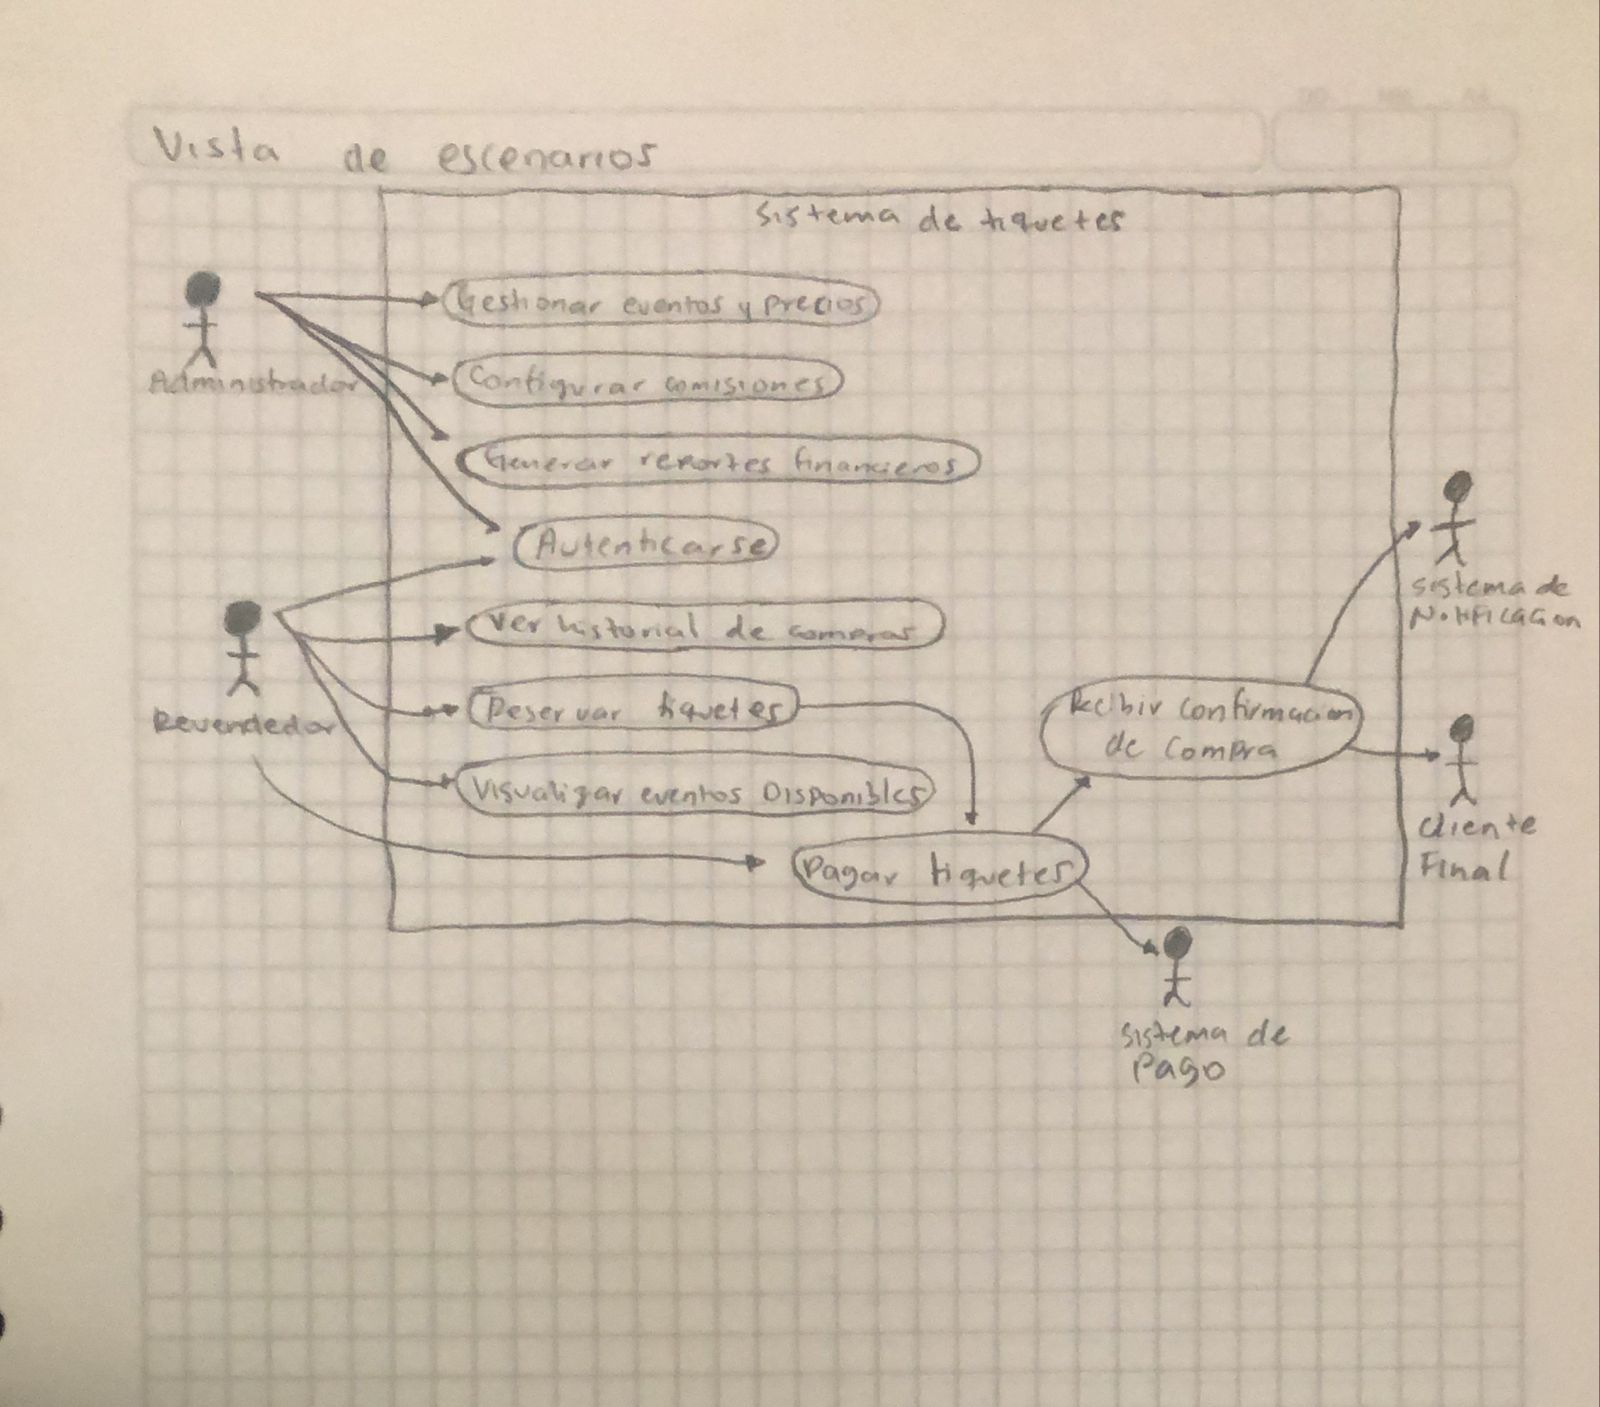 Vista de escenarios
Sistema de tiquetes
Gestionar eventos y precios
Administrador
Configurar comisiones
Generar reportes financieros
Autenticarse
Ver historial de compras
Revendedor
Reservar tiquetes
Visualizar eventos Disponibles
Pagar tiquetes
Recibir confirmacion
de compra
Sistema de
Notificacion
Cliente
Final
Sistema de
Pago